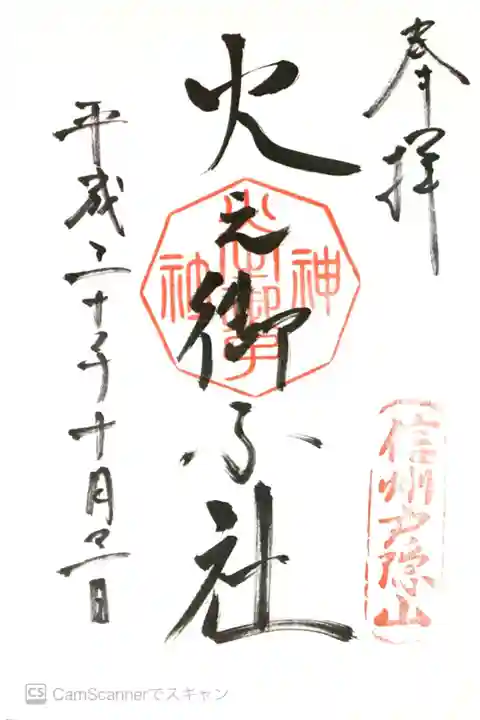 奉拝
信州戸隠山
火之御子社
神
社
平成二十年十月二日
CS CamScannerでスキャン